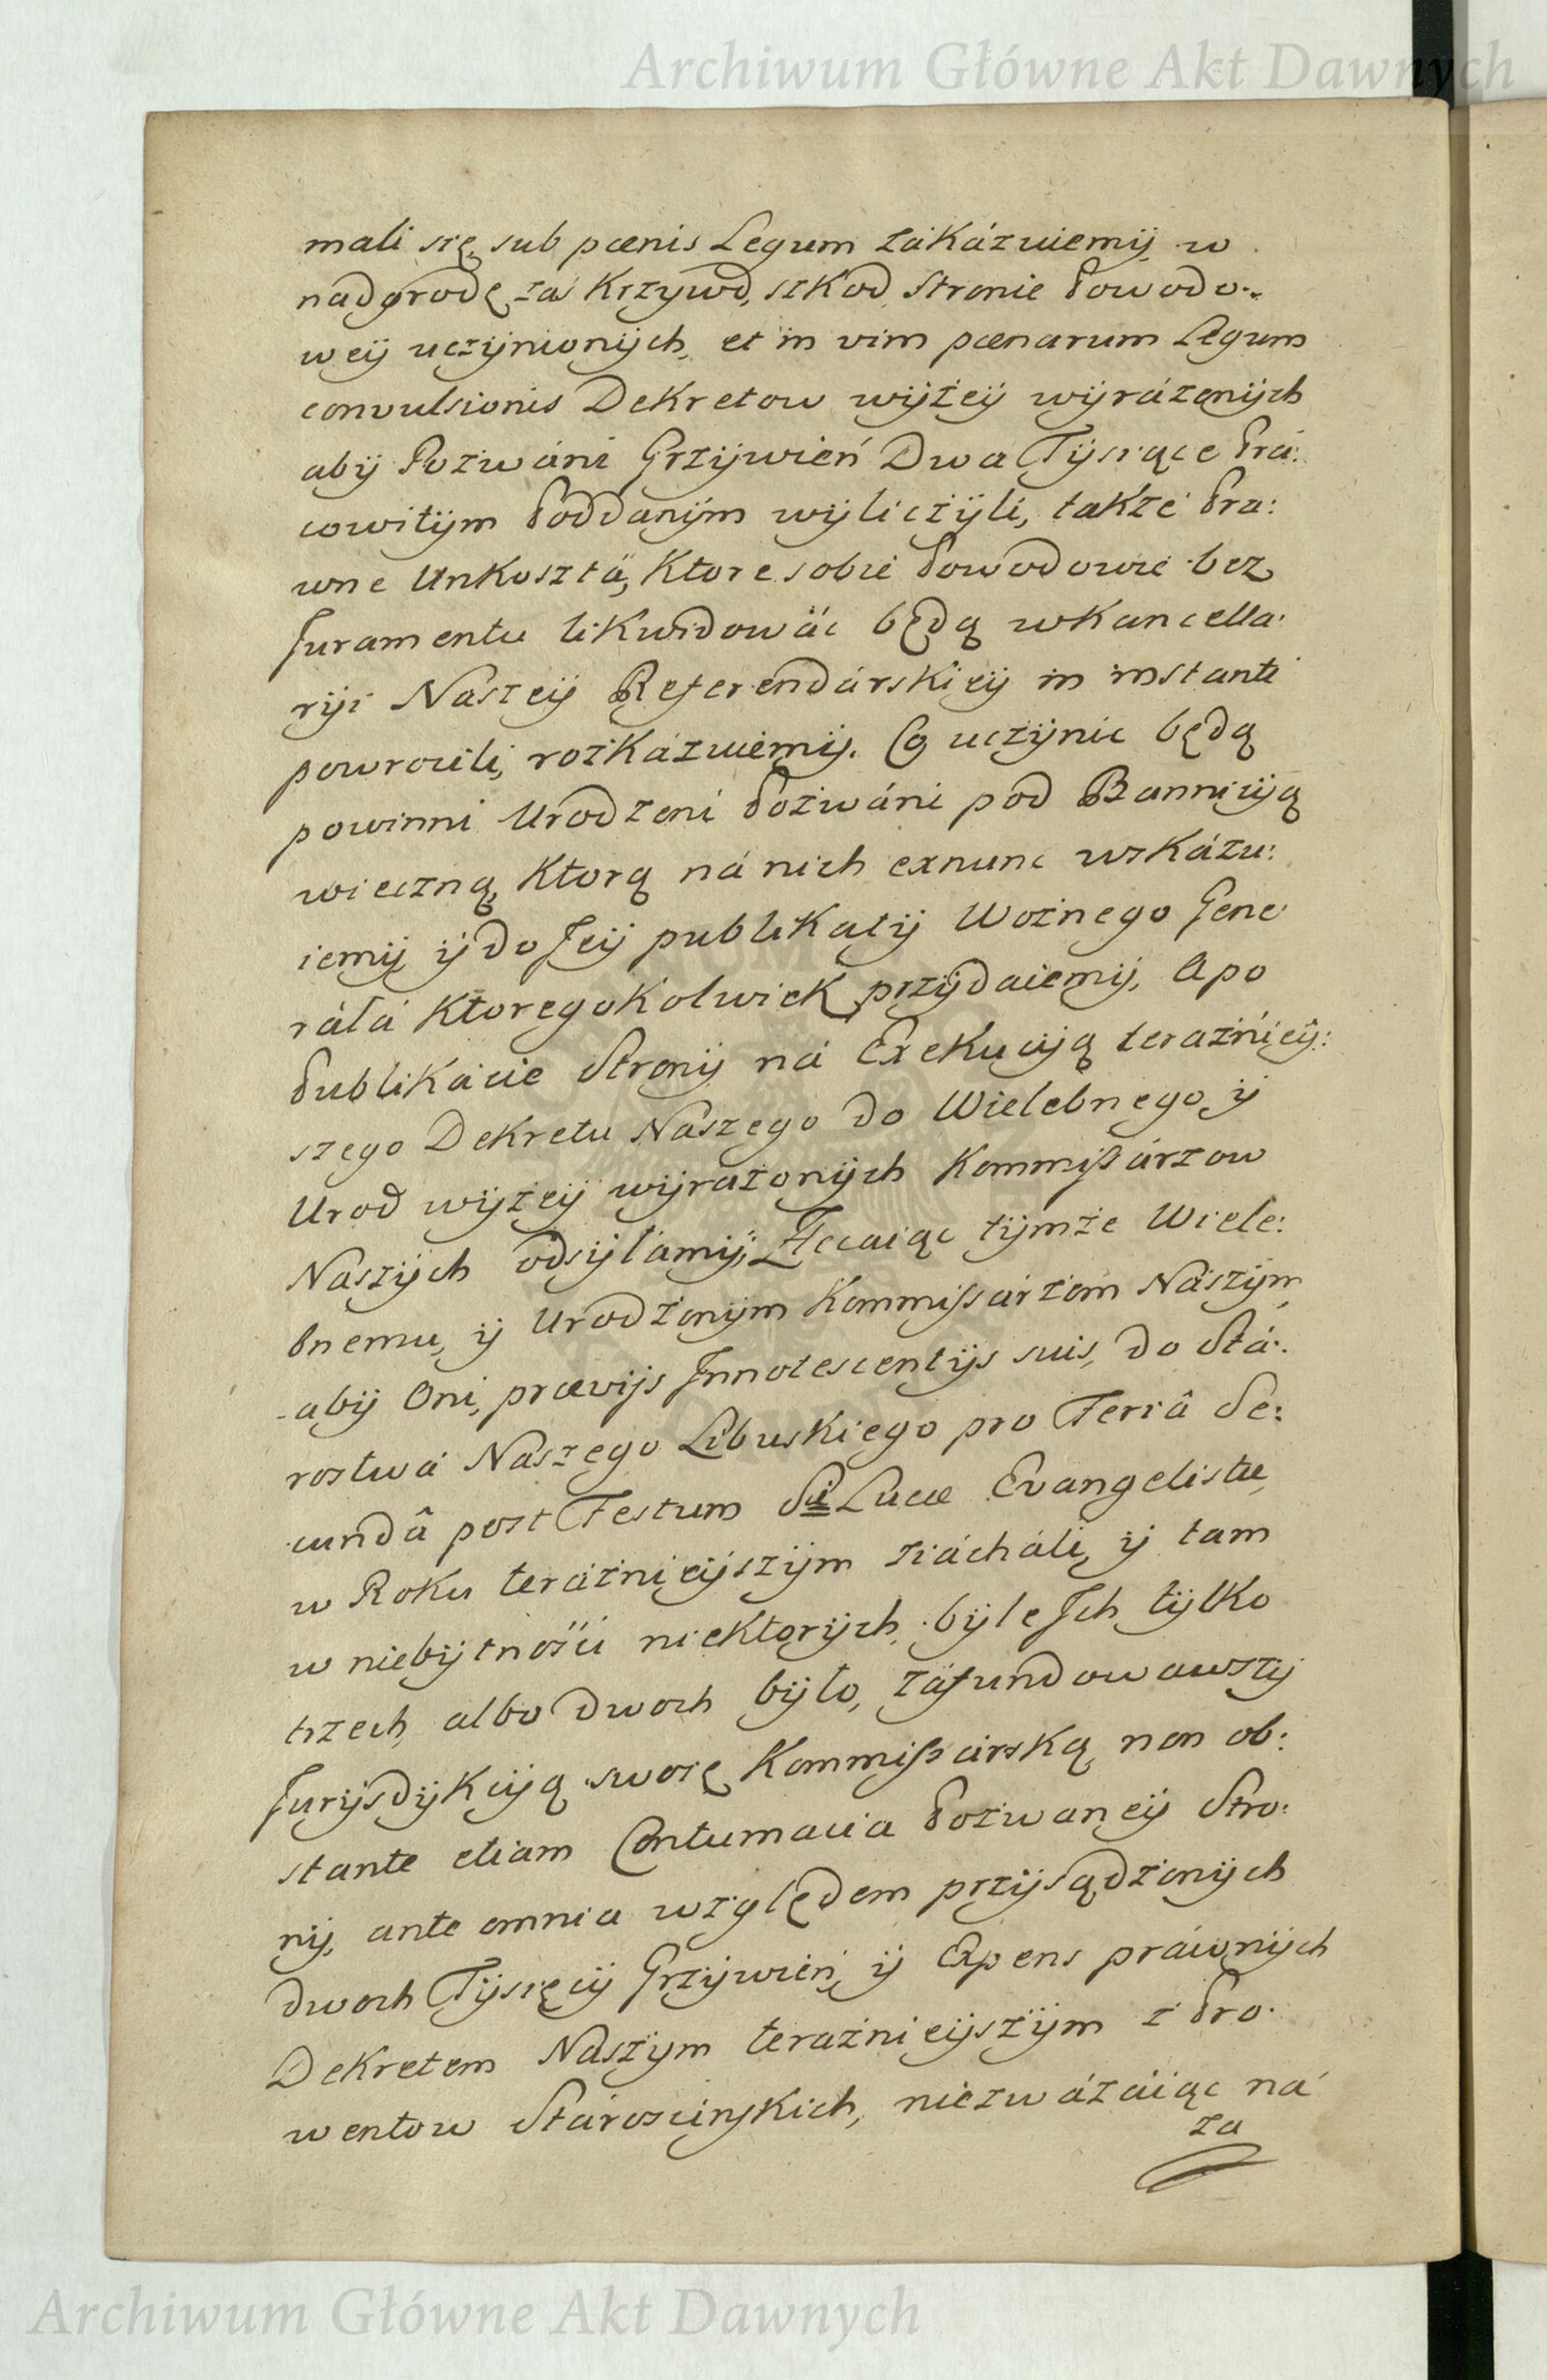 Archiwum Główne Akt Dawnych
mali się, sub pœnis Legum zákázuiemÿ, w
nadgrodę za Krzywd, szkod Stronie Powodo:
weÿ uczÿnionÿch, et in vim pœnarum Legum
convulsionis Dekretow wÿżeÿ wÿráżonÿch
abÿ Pozwáni Grzÿwień Dwa Tÿsiące Prá:
cowitÿm Poddanÿm wÿliczÿli, także Pra:
wne Unkosztá, ktore sobie Powodowie bez
Juramentu likwidowác będą w Kancella:
rÿi Naszeÿ Referendárskieÿ in instanti
powrocili, rozkázuiemÿ. Co uczÿnic będą
powinni Urodzeni Pozwáni pod Banniciją
wieczną, ktorą ná nich exnunc wskázu:
iemÿ, ÿ do Jeÿ publikatÿ Woźnego Gene
ráłá ktoregokolwiek przÿdaiemÿ, A po
Publikácie Stronÿ ná Exekuciją teraźnieÿ:
szego Dekretu Nászego do Wielebnego, ÿ
Urod wÿżeÿ wÿrażonÿch Kommissárzow
Naszÿch odsÿłamÿ, Zlecaiąc tÿmże Wiele:
bnemu, ÿ Urodzonÿm Kommissárzom Nászÿm,
abÿ Oni, prævijs Innotescentijs suis, do Stá:
rostwá Nászego Libuskiego pro Feriâ Se:
cundâ post Festum S<u>ti</u> Lucæ Evangelistæ,
w Roku teráźnieÿszÿm ziácháli, ÿ tam
w niebÿtności niektorÿch, bÿle Jch tÿlko
trzech, albo dwoch bÿło, záfundowawszÿ
Jurÿsdÿkciją swoię Kommissárską, non ob:
stante etiam Contumacia Pozwaneÿ Stro:
nÿ, ante omnia względem przÿsądzonÿch
dwoch Tÿsięcÿ Grzÿwień, ÿ Expens práwnÿch
Dekretem Naszÿm teraźnieÿszÿm z Pro:
wentow Stárościnskich, niezwáżáiąc ná
za
Archiwum Główne Akt Dawnych